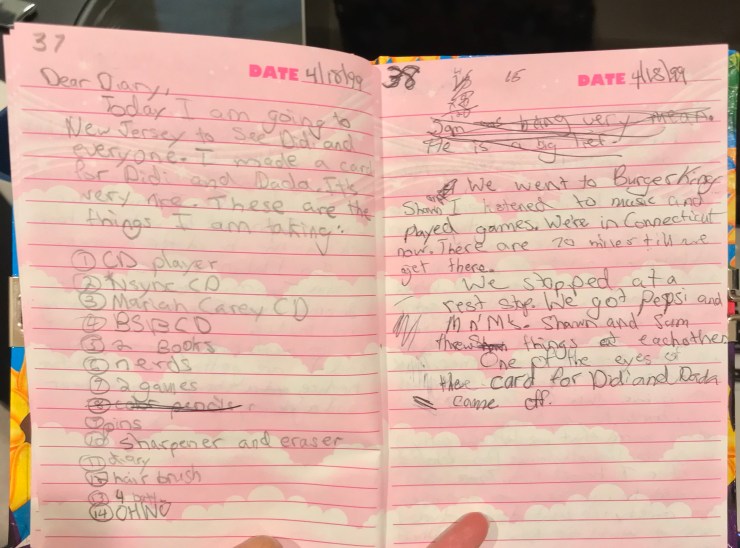 37
DATE 4/18/99
Dear Diary,
Today I am going to
New Jersey to See Didi and
everyone. I made a card
for Didi and Dada. It's
very nice. These are the
things I am taking:
① CD player
② Nsync CD
③ Mariah Carey CD
④ BSB CD
⑤ 2 Books
⑥ nerds
⑦ 2 games
⑧ pencil
⑨ pins
⑩ sharpener and eraser
⑪ diary
⑫ hair brush
⑬ 4
⑭ OHNO
38 15 DATE 4/18/99
Sam is being very mean.
He is a big
We went to Burger King
Shawn I listened to music and
played games. We're in Connecticut
now. There are 70 miles till we
get there.
We stopped at a
rest stop. We got Pepsi and
M n' M's. Shawn and Sam
threw things at eachother
One of the eyes of
the card for Didi and Dada
came off.